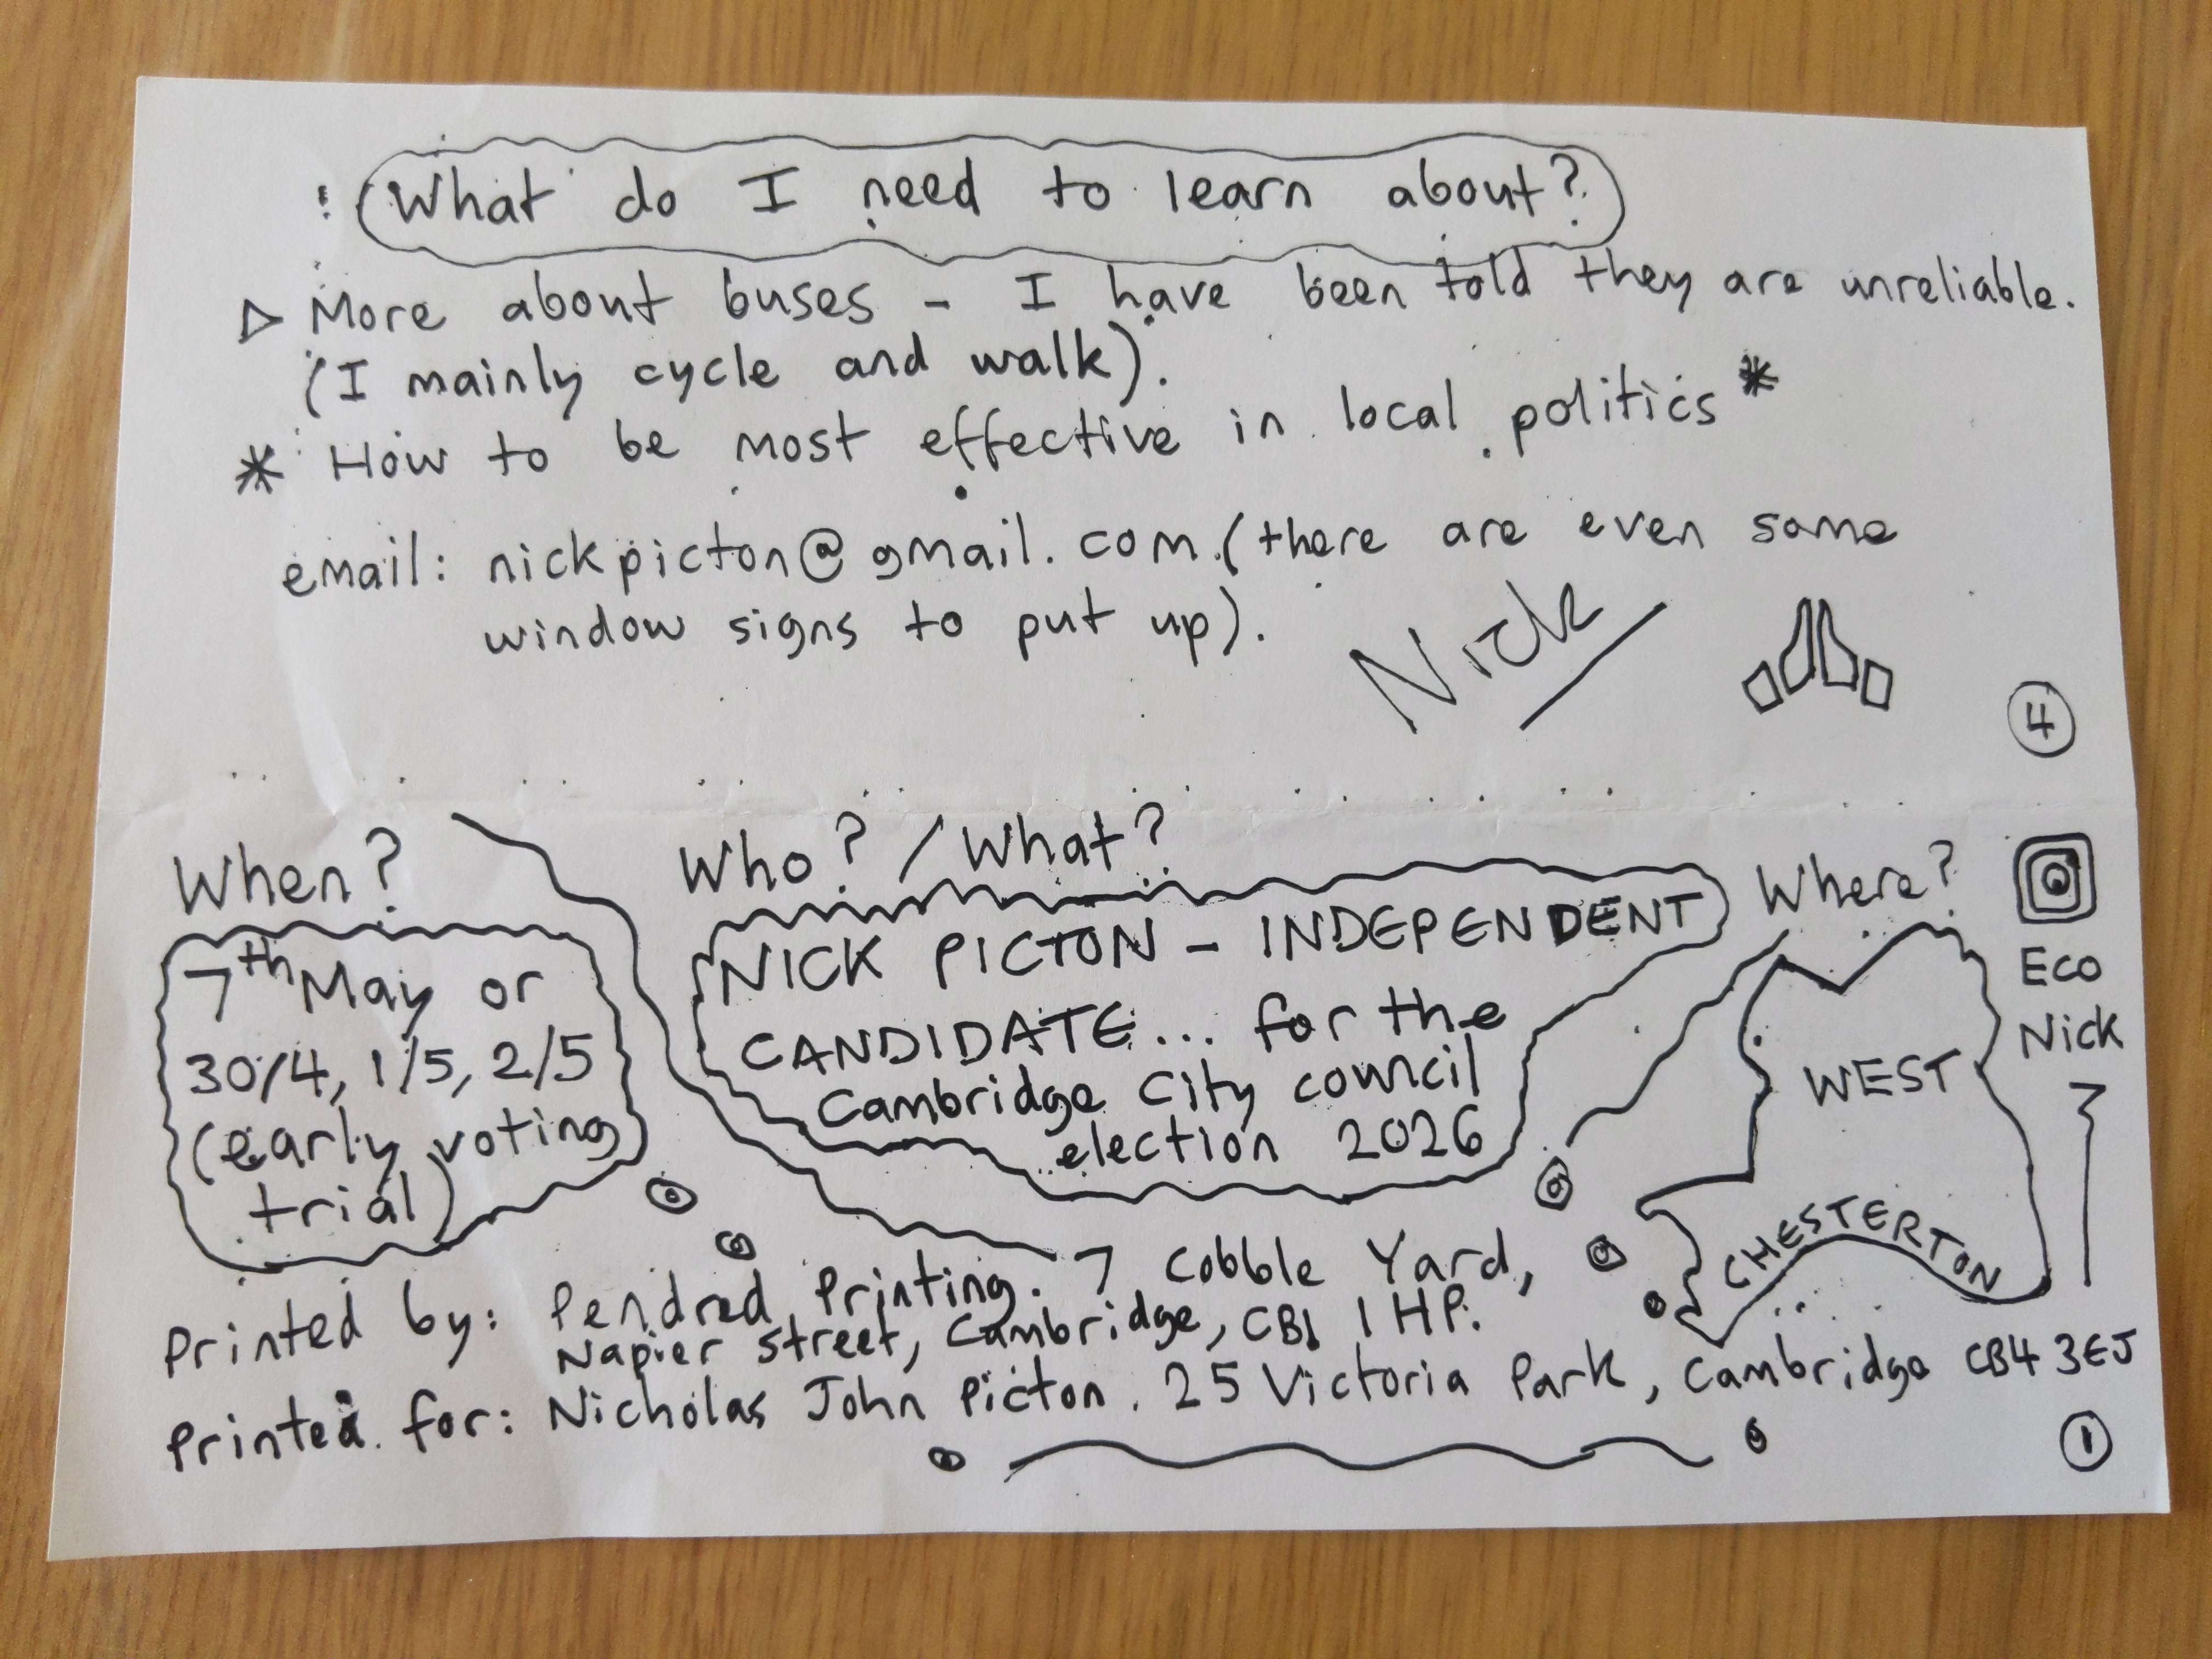 What do I need to learn about?
More about buses - I have been told they are unreliable.
(I mainly cycle and walk).
* How to be most effective in local politics *
email: nickpicton@gmail.com (there are even some
window signs to put up).
Nick
4
When?
7th May or
30/4, 1/5, 2/5
(early voting
trial)
Who? / What?
NICK PICTON - INDEPENDENT
CANDIDATE... for the
Cambridge City council
election 2026
Where?
WEST
CHESTERTON
Eco
Nick
Printed by: Pendred Printing. 7 Cobble Yard,
Napier Street, Cambridge, CB1 1HP.
Printed for: Nicholas John Picton. 25 Victoria Park, Cambridge CB4 3EJ
1